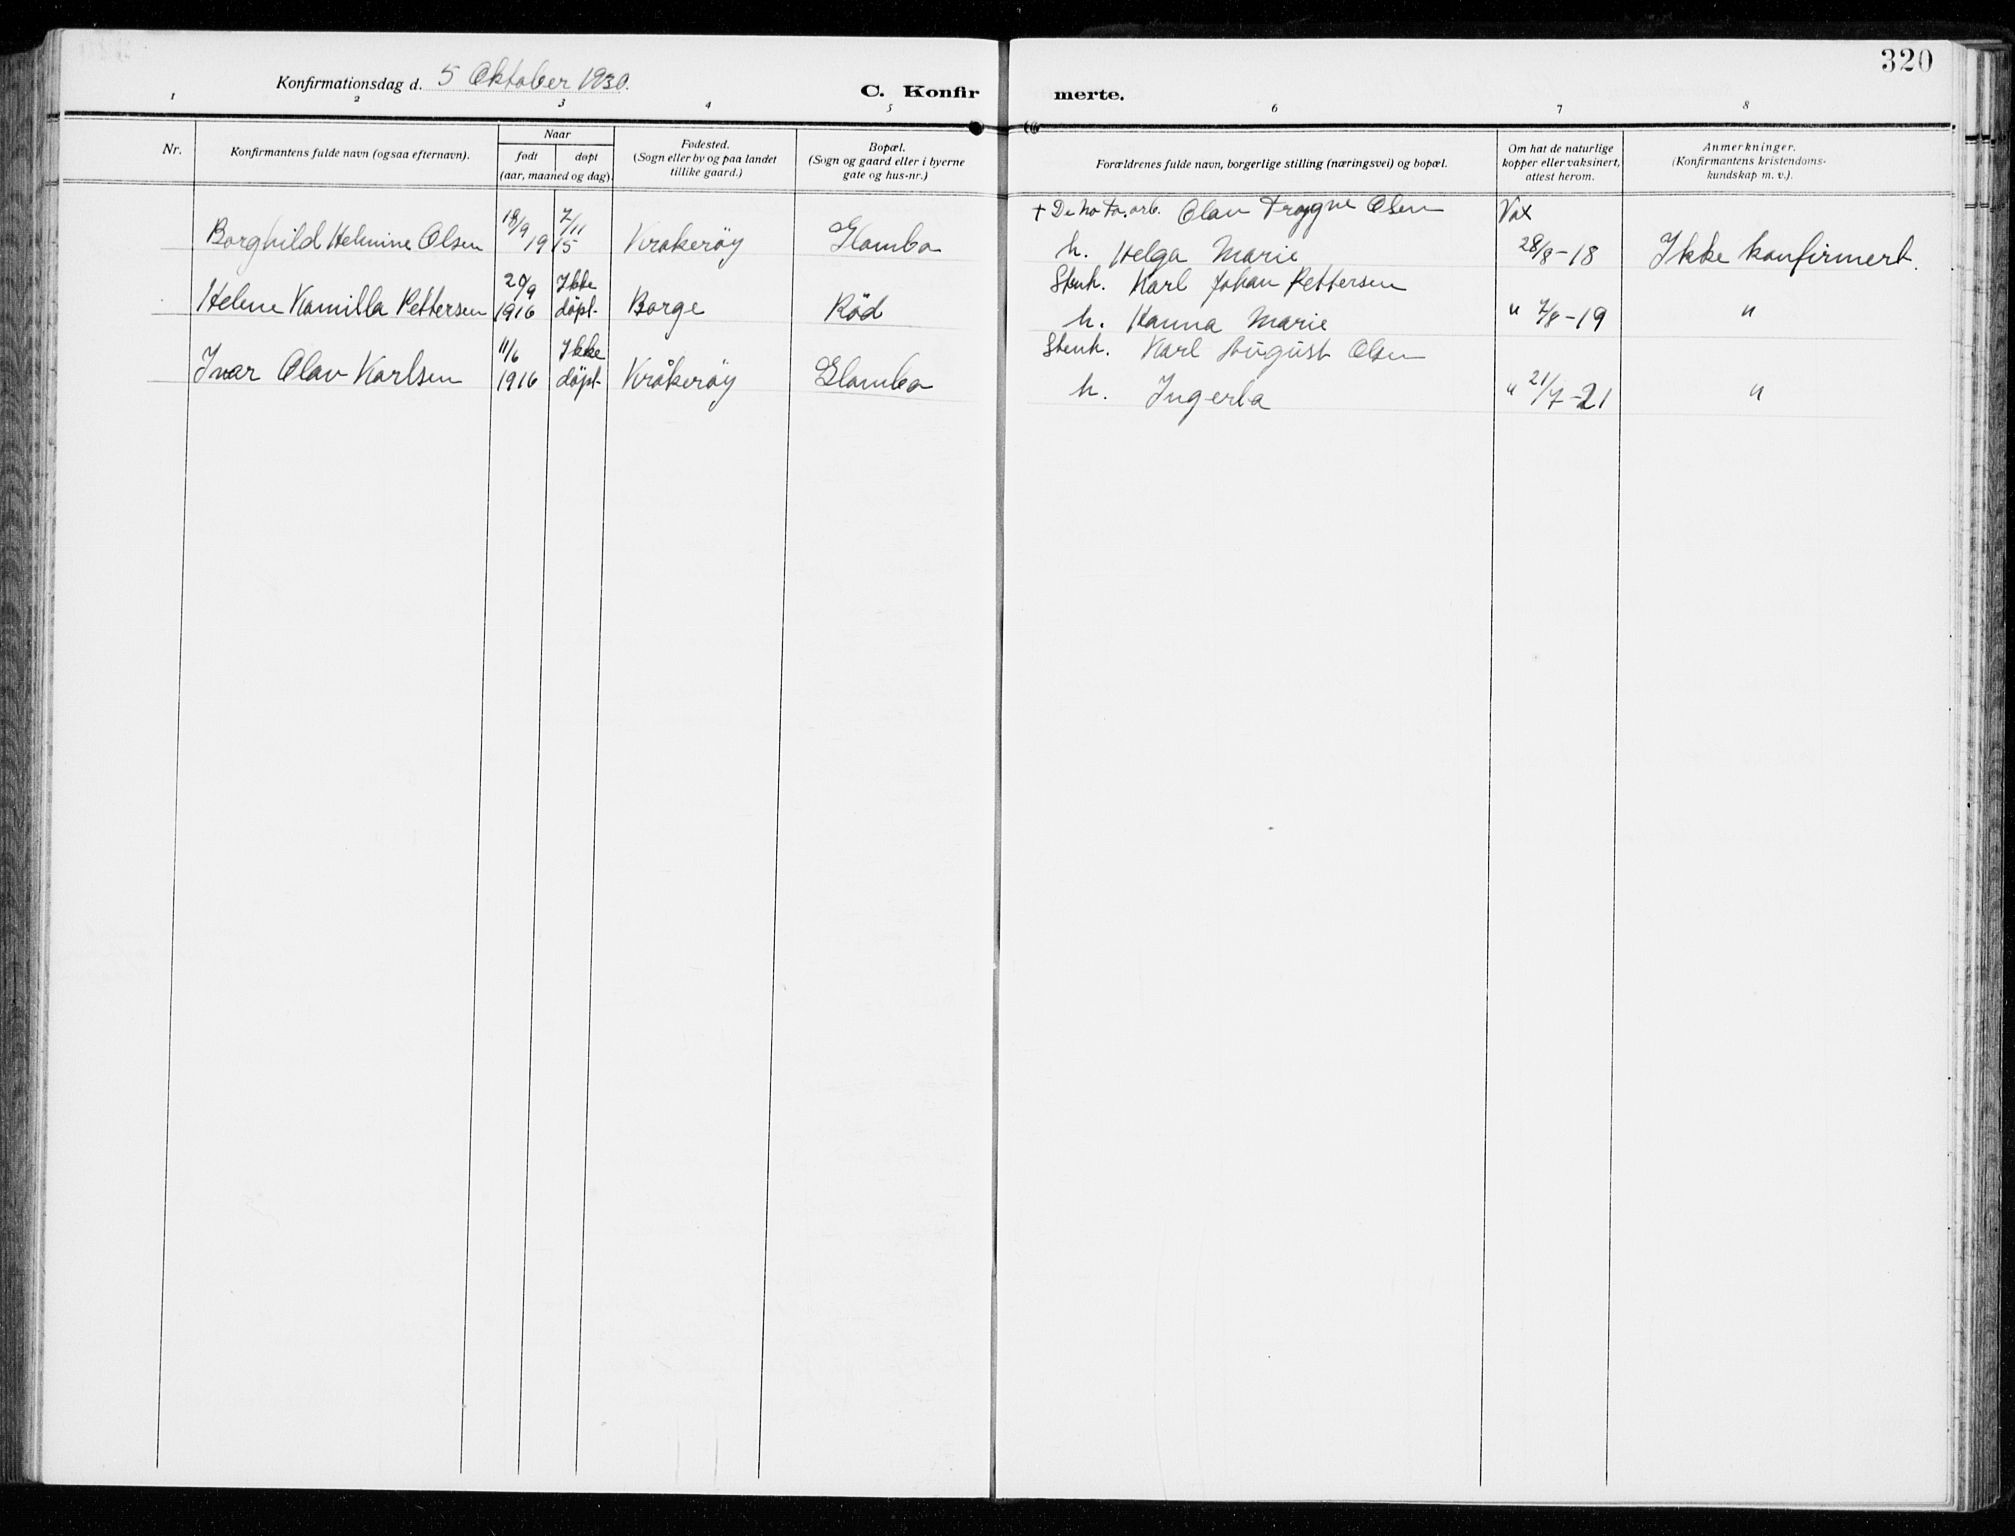 320
Konfirmationsdag d. 5 Oktober 1930.
C. Konfirmerte.
1 2 3 4 5 6 7 8
Nr.
Konfirmantens fulde navn (ogsaa efternavn).
Naar
født døpt
(aar, maaned og dag).
Fødested.
(Sogn eller by og paa landet
tillike gaard.)
Bopæl.
(Sogn og gaard eller i byerne
gate og hus-nr.)
Forældrenes fulde navn, borgerlige stilling (næringsvei) og bopæl.
Om hat de naturlige
kopper eller vaksinert,
attest herom.
Anmerkninger.
(Konfirmantens kristendoms-
kundskap m. v.).
18/9 7/11 + De No Fa. arb. Olav Trygve Olsen Vax
Borghild Helmine Olsen 1915 Kråkerøy Glombo h. Helga Marie 28/8-18 Ikke konfirmert.
20/9 Ikke Stenh. Karl Johan Pettersen
Helene Kamilla Pettersen 1916 döpt- Borge Röd h. Hanna Marie " 7/8-19 "
11/6 Ikke Stenh. Karl August Olsen
Ivar Olav Karlsen 1916 döpt- Kråkerøy Glombo h. Ingerba " 21/7-21 "